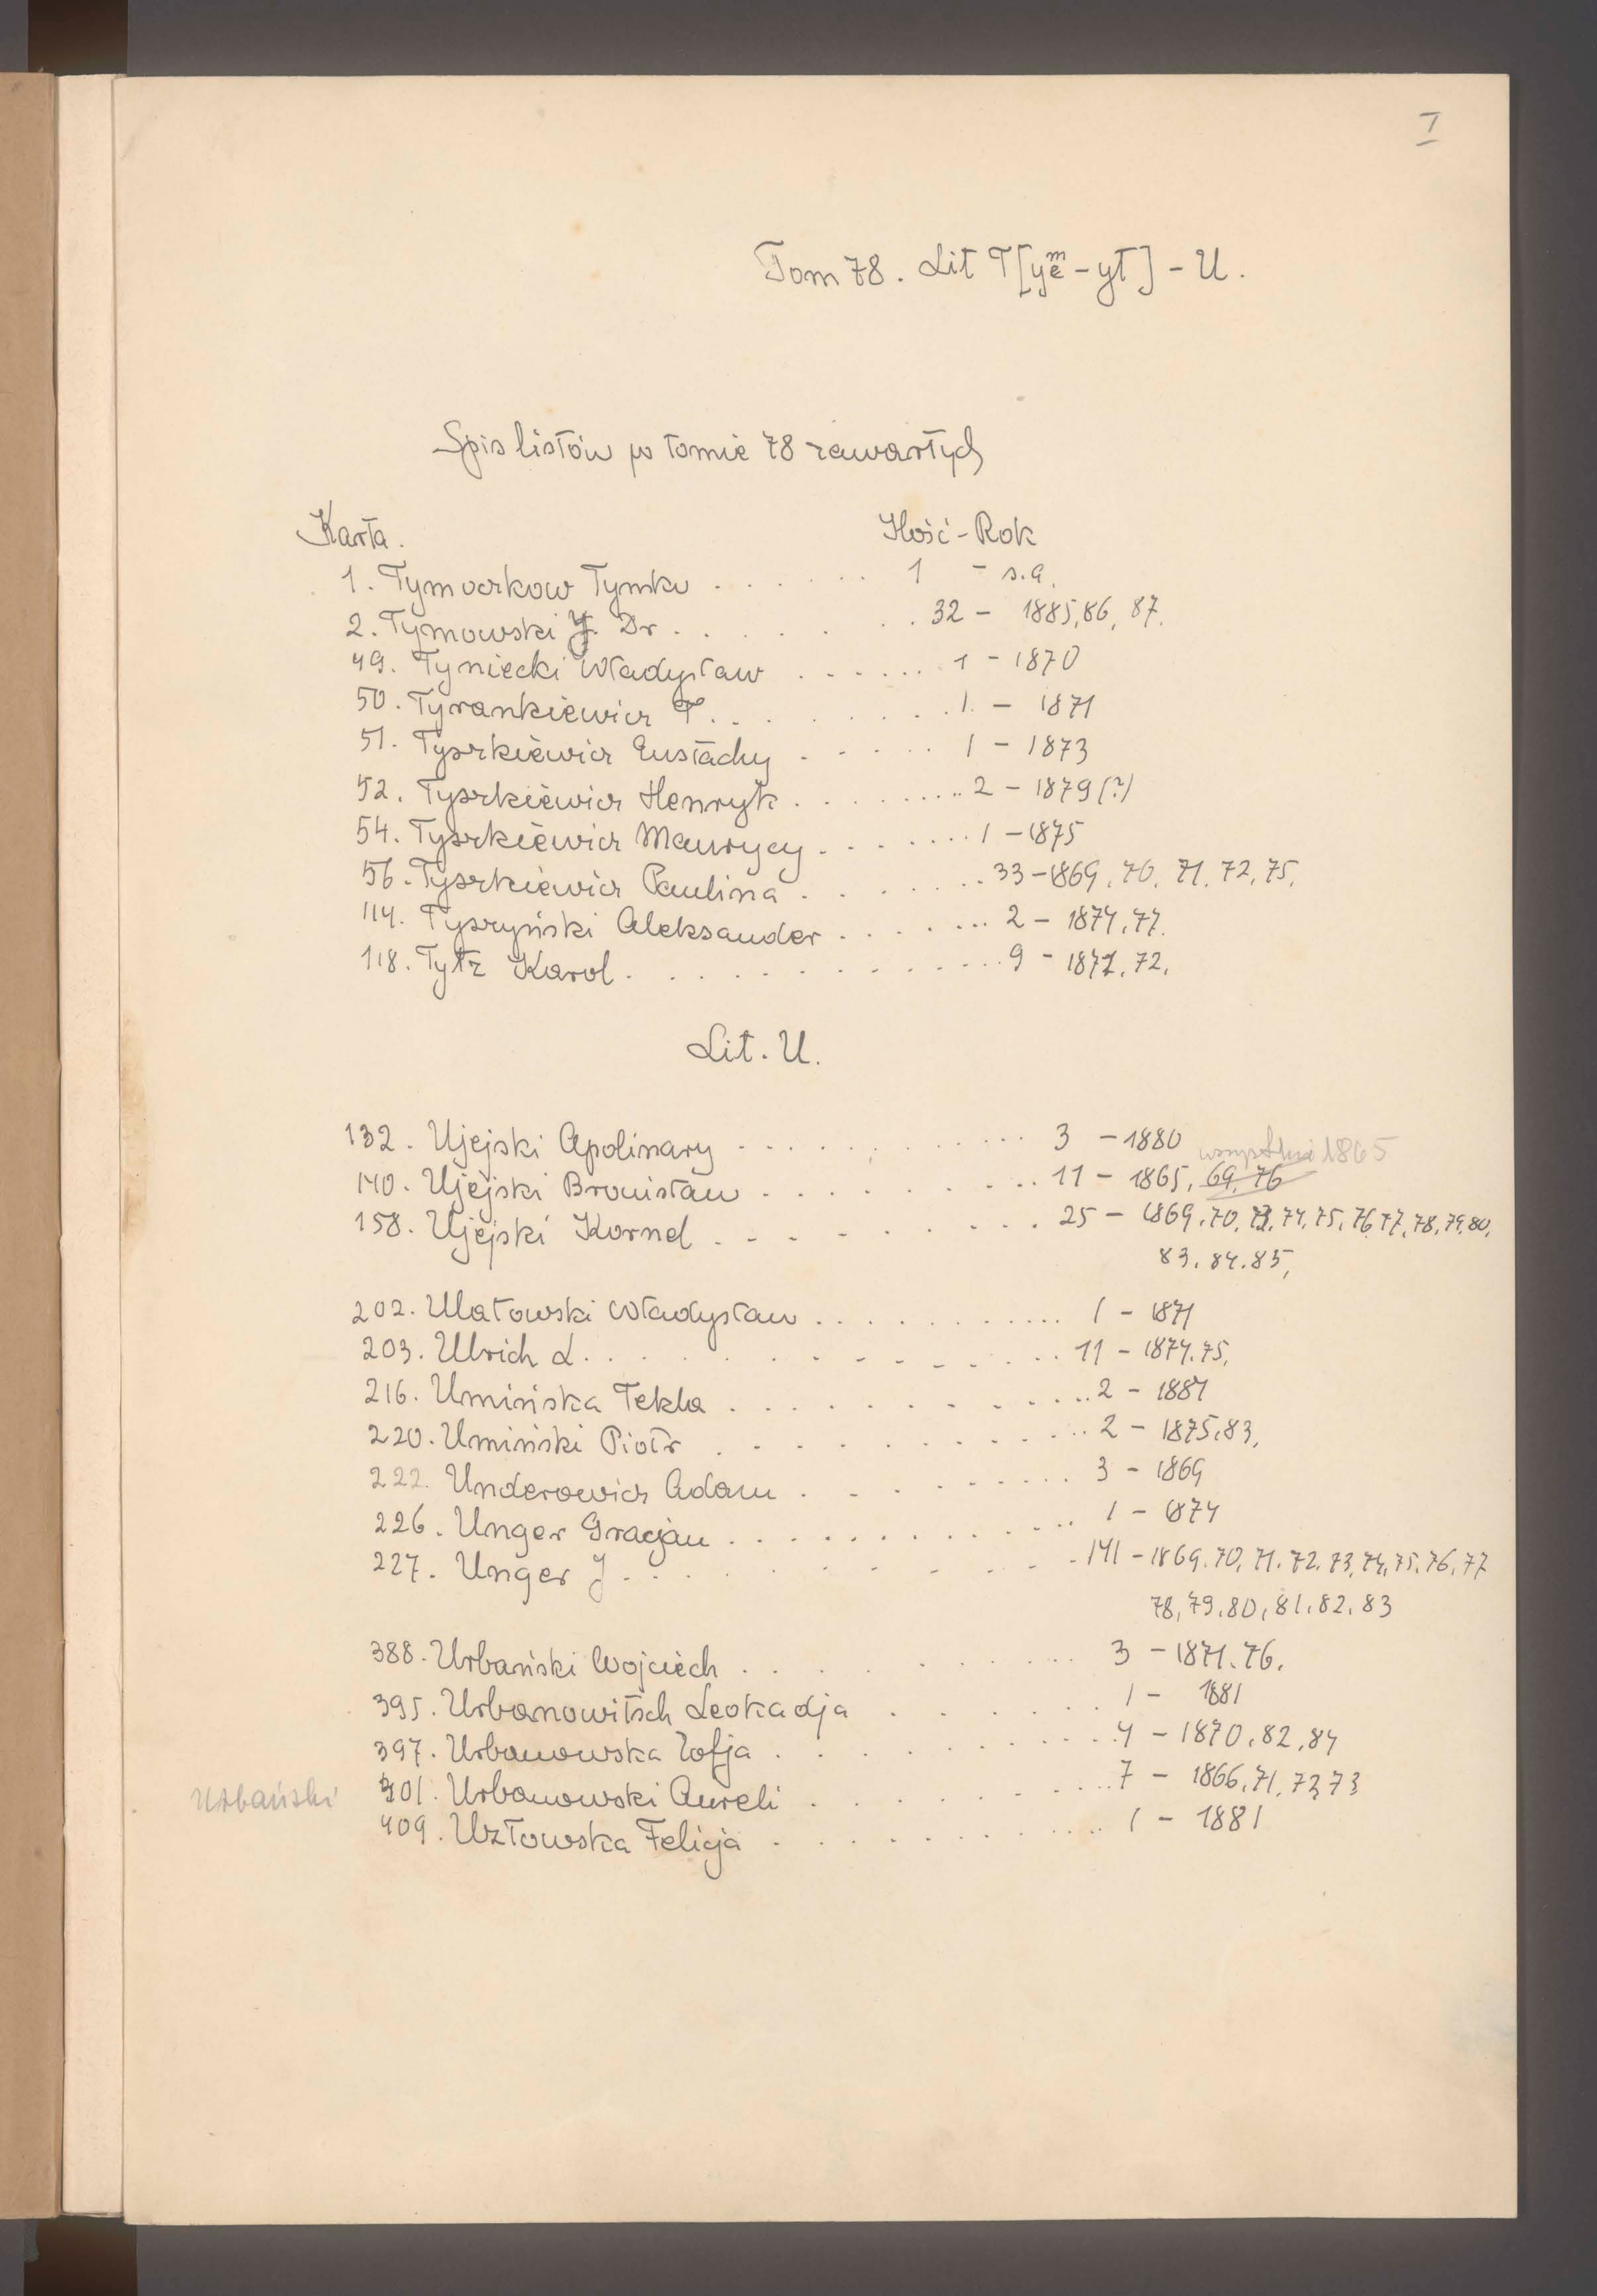 I
Tom 78. Lit T[ym̶e̶-yt] - U.
Spis listów w tomie 78 zawartych
Karta. Ilość - Rok
1. Tymoczkow Tymko . . . . . . 1 - s.a.
2. Tymowski J. Dr . . . . . . 32 - 1885,86,87.
49. Tyniecki Władysław . . . . . . 1 - 1870
50. Tyrankiewicz T. . . . . . . 1. - 1871
51. Tyszkiewicz Eustachy . . . . . 1 - 1873
52. Tyszkiewicz Henryk . . . . . . . . 2 - 1879(?)
54. Tyszkiewicz Maurycy . . . . . . 1 - 1875
56. Tyszkiewicz Paulina . . . . . . . 33 - 1869. 70. 71. 72. 75.
114. Tyszyński Aleksander . . . . . . . 2 - 1874.77.
118. Tytz Karol . . . . . . . . . . . 9 - 1871.72.
Lit. U.
132. Ujejski Apolinary . . . . . . . . . . . . 3 - 1880
wszystkie 1865
140. Ujejski Bronisław . . . . . . . . . . 11 - 1865, 69, 76
158. Ujejski Kornel . . . . . . . . . 25 - 1869.70,73,74,75,76,77,78,79,80,
83.84.85,
202. Ulatowski Władysław . . . . . . . . . . . 1 - 1871
203. Ulrich L. . . . . . . . . . . . . 11 - 1874.75.
216. Umińska Tekla . . . . . . . . . . . . 2 - 1887
220. Umiński Piotr . . . . . . . . . . . 2 - 1875.83,
222. Underowicz Adam . . . . . . . . . 3 - 1869
226. Unger Gracjan . . . . . . . . . . . . . 1 - 1874
227. Unger J . . . . . . . . . . . . 141 - 1869.70,71.72.73,74,75.76,77
78,79.80,81.82.83
388. Urbański Wojciech . . . . . . . . . . 3 - 1871.76.
395. Urbanowitsch Leokadja . . . . . . 1 - 1881
397. Urbanowska Zofja . . . . . . . . . . . 4 - 1870.82,84
Urbański 401. Urbanowski Aureli . . . . . . . . . . 7 - 1866,71,72,73
409. Uzłowska Felicja . . . . . . . . . . . . 1 - 1881